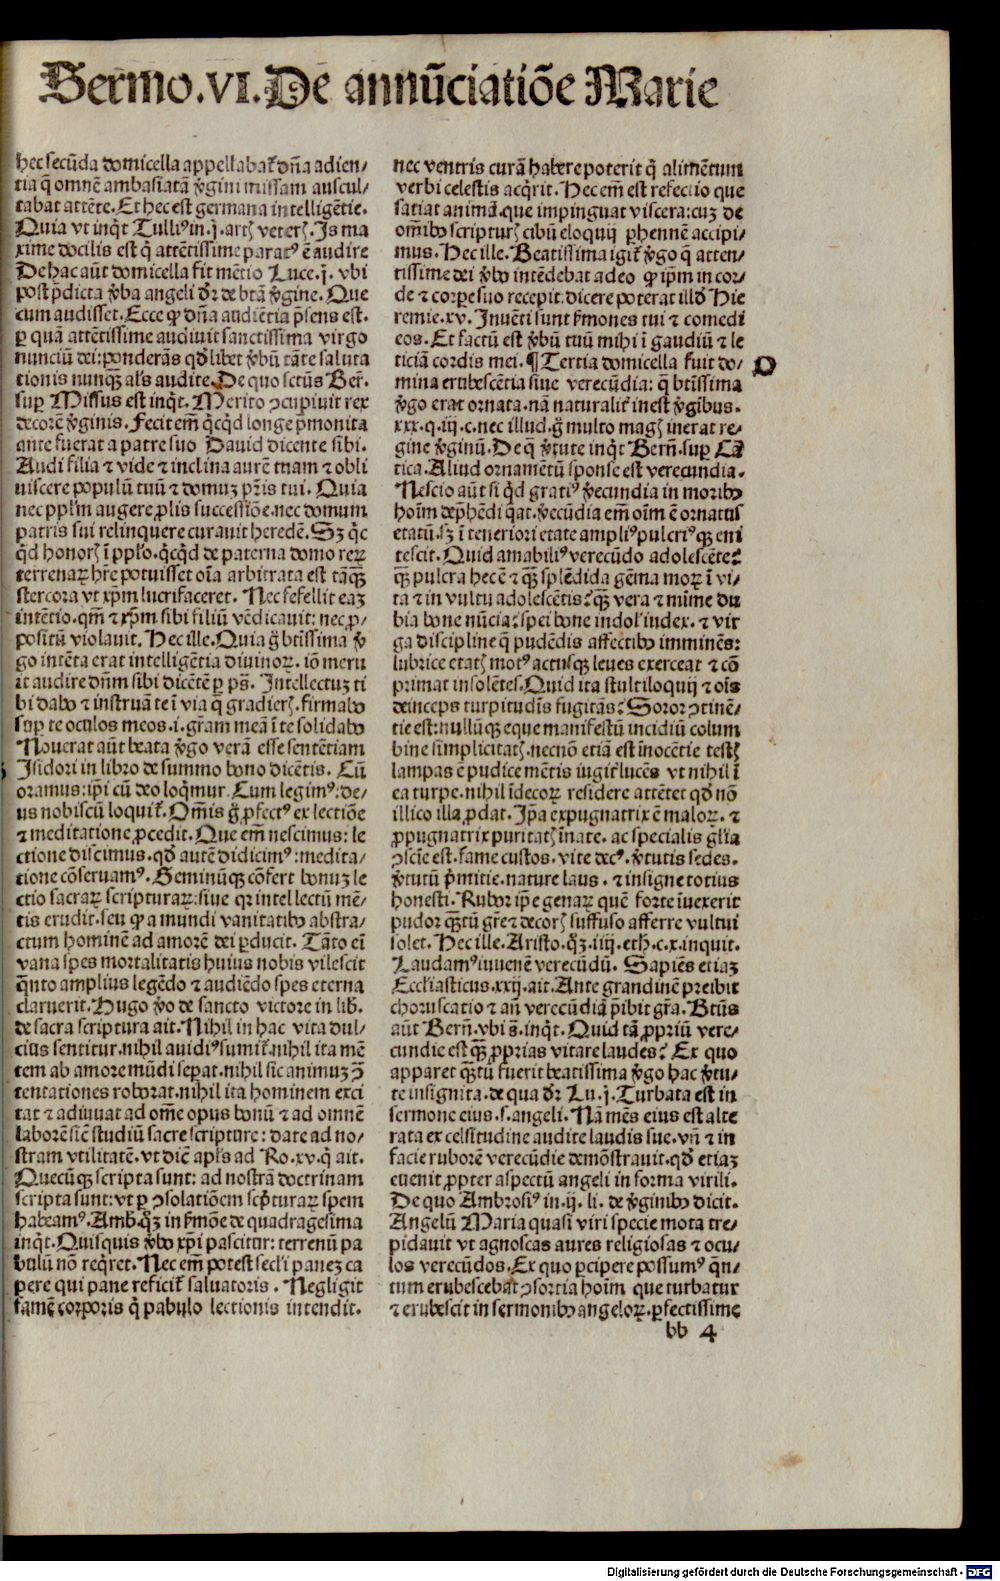 Sermo.VI.De annūciatiōe Marie
hec secūda domicella appellabat᷑ dn̄a adien⸗
tia q̄ omnē ambasiatā v̄gini missam auscul⸗
tabat attēte. Et hec est germana intelligētie.
Quia vt inqͥt Tulliꝰ in.j. artꝭ veterꝭ. Is ma
xime docilis est q̇ attētissime paratꝰ ē audire
De hac aūt domicella fit mētio Luce.j. vbi
post p̄dicta v̄ba angeli dr̄ de btā v̄gine. Que
cum audisset. Ecce ꝙ dn̄a audiētia p̄sens est.
ꝑ quā attētissime audiuit sanctissima virgo
nunciū dei: ponderās qd̓libet v̄bū tāte saluta
tionis nunqꝫ al̓s audite. De quo sctūs Ber̄.
suꝑ Missus est inqͥt. Merito ꝯcupiuit rex
decorē v̄ginis. Fecit em̄ qͥcqͥd longe p̄monita
ante fuerat a patre suo Dauid dicente sibi.
Audi filia ⁊ vide ⁊ inclina aurē tuam ⁊ obli
uiscere populū tuū ⁊ domuꝫ pr̄is tui. Quia
nec ppl̓m augere ꝓlis successiōe. nec domum
patris sui relinquere curauit heredē. Sꝫ qͥc
qͥd honorꝭ ī ppl̓o. qͥcqͥd de paterna domo reꝝ
terrenaꝝ hr̄e potuisset oīa arbitrata est tāqꝫ
stercora vt xp̄m lucrifaceret. Nec fefellit eaꝫ
intētio. qm̄ ⁊ xp̄m sibi filiū vēdicauit: nec ꝓ⸗
positū violauit. Hec ille. Quia g̊ btīssima v̄
go intēta erat intelligētia diuinoꝝ. iō meru
it audire dn̄m sibi dicētē ꝑ ps̄. Intellectuꝫ ti
bi dabo ⁊ instruā te ī via q̄ gradierꝭ. firmabo
suꝑ te oculos meos.i. gr̄am meā ī te solidabo
Nouerat aūt beata v̄go verā esse sentētiam
Isidori in libro de summo bono dicētis. Cū
oramus: ip̄i cū deo loqͥmur. Cum legimꝰ: de⸗
us nobiscū loquit᷑. Om̄is g̊ ꝓfectꝰ ex lectiōe
⁊ meditatione ꝓcedit. Que em̄ nescimus: le
ctione discimus. qd̓ autē didicimꝰ: medita⸗
tione cōseruamꝰ. Geminūqꝫ cōfert bonuꝫ le
ctio sacraꝝ scripturaꝝ: siue qꝛ intellectū mē⸗
tis erudit. seu ꝙ a mundi vanitatibꝰ abstra⸗
ctum hominē ad amorē dei ꝑducit. Tāto em̄
vana spes mortalitatis huius nobis vilescit
qͣnto amplius legēdo ⁊ audiēdo spes eterna
claruerit. Hugo v̄o de sancto victore in lib̄.
de sacra scriptura ait. Nihil in hac vita dul⸗
cius sentitur. nihil auidiꝰ sumit᷑. nihil ita mē
tem ab amore mūdi seꝑat. nihil sic animuꝫ ꝯ̄
tentationes roborat. nihil ita hominem exci
tat ⁊ adiuuat ad om̄e opus bonū ⁊ ad omnē
laborē sic̄ studiū sacre scripture: date ad no⸗
stram vtilitatē. vt dic̄ apl̓s ad Ro.xv. q̇ ait.
Quecūqꝫ scripta sunt: ad nostrā doctrinam
scripta sunt: vt ꝑ ꝯsolatiōem scp̄turaꝝ spem
habeamꝰ. Amb̄. qͦꝫ in s̄mōe de quadragesima
inqͥt. Quisquis v̄bo xp̄i pascitur: terrenū pa
bulū nō reqͥret. Nec em̄ potest secl̓i paneꝫ ca
pere qui pane reficit᷑ saluatoris. Negligit
famē corporis qͥ pabulo lectionis intendit.
nec ventris curā habere poterit q̇ alimētum
verbi celestis acqͥrit. Hec em̄ est refectio que
satiat animā. que impinguat viscera: cuꝫ de
om̄ibꝰ scripturꝭ cibū eloquij ꝑhennē accipi⸗
mus. Hec ille. Beatissima igit᷑ v̄go q̄ atten⸗
tissime dei v̄bo intēdebat adeo ꝙ ip̄m in cor⸗
de ⁊ corꝑe suo recepit. dicere poterat illd̓ Hie
remie.xv. Inuēti sunt s̄mones tui ⁊ comedi
eos. Et factū est v̄bū tuū mihi ī gaudiū ⁊ le
ticiā cordis mei. ¶ Tertia domicella fuit do⸗
O
mina erubescētia siue verecūdia: q̄ btīssima
v̄go erat ornata. nā naturalit᷑ inest v̄gībus.
xxx.q.iij.c. nec illud. g̊ multo magꝭ inerat re⸗
gine v̄ginū. De q̄ v̄tute inqͥt Bern̄. suꝑ Cā
tica. Aliud ornamētū sponse est verecundia.
Nescio aūt si qͥd gratiꝰ v̄ecundia in moribꝰ
hoīm dep̄hēdi q̄at. v̄ecūdia em̄ oīm ē ornatus
etatū. sꝫ ī teneriori etate ampliꝰ pulcriꝰqꝫ eni
tescit. Quid amabiliꝰ verecūdo adolescēte?
qꝫ pulcra hec ē ⁊ qꝫ splēdida gēma moꝝ ī vi⸗
ta ⁊ in vultu adolescētis? qꝫ vera ⁊ mīme du
bia bone nūcia: spei bone indol̓ index. ⁊ vir
ga discipline q̄ pudēdis affectibꝰ imminēs:
lubrice etatꝭ motꝰ actusqꝫ leues exerceat ⁊ cō
primat insolētes. Quid ita stultiloquij ⁊ oīs
deinceps turpitudīs fugitās? Soror ꝯtinē⸗
tie est: nullūqꝫ eque manifestū incidiū colum
bine simplicitatꝭ. necnō etiā est īnocētie testꝭ
lampas ē pudice mētis iugit᷑ lucēs vt nihil ī
ea turpe. nihil īdecoꝝ residere attētet qd̓ nō
illico illa ꝓdat. Ip̄a expugnatrix ē maloꝝ. ⁊
ꝓpugnatrix puritatꝭ īnate. ac specialis gl̓ia
ꝯscīe est. fame custos. vite decꝰ. v̄tutis sedes.
v̄tutū p̄mitie. nature laus. ⁊ insigne totius
honesti. Rubor ip̄e genaꝝ quē forte īuexerit
pudor qꝫtū gr̄e ⁊ decorꝭ suffuso afferre vultui
solet. Hec ille. Aristo. qͦꝫ.iiij. eth.c.x. inquit.
Laudamꝰ iuuenē verecūdū. Sapiēs etiaꝫ
Ecclīasticus.xxij. ait. Ante grandinē preibit
choruscatio ⁊ an̄ verecūdiā p̄ibit gr̄a. Btūs
aūt Bern̄. vbi s̄. inqͥt. Quid tā ꝓpriū vere⸗
cundie est qꝫ ꝓprias vitare laudes? Ex quo
apparet qꝫtū fuerit beatissima v̄go hac v̄tu⸗
te insignita. de qua dr̄ Lu.j. Turbata est in
sermone eius.s. angeli. Nā mēs eius est alte
rata ex celsitudine audite laudis sue. vn̄ ⁊ in
facie ruborē verecūdie demōstrauit. qd̓ etiaꝫ
euenit ꝓpter aspectū angeli in forma virili.
De quo Ambrosiꝰ in.ij. li. de v̄ginibꝰ dicit.
Angelū Maria quasi viri specie mota tre⸗
pidauit vt agnoscas aures religiosas ⁊ ocu⸗
los verecūdos. Ex quo ꝑcipere possumꝰ qn̄⸗
tum erubescebat ꝯsortia hoīm que turbatur
⁊ erubescit in sermonibꝰ angeloꝝ. ꝑfectissime
bb 4
Digitalisierung gefördert durch die Deutsche Forschungsgemeinschaft - DFG